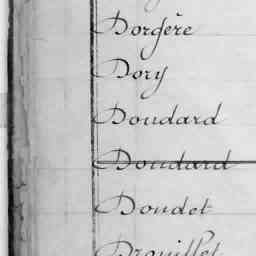 Dorgère
Dory
Doudard
Doudard
Doudet
Drouillet